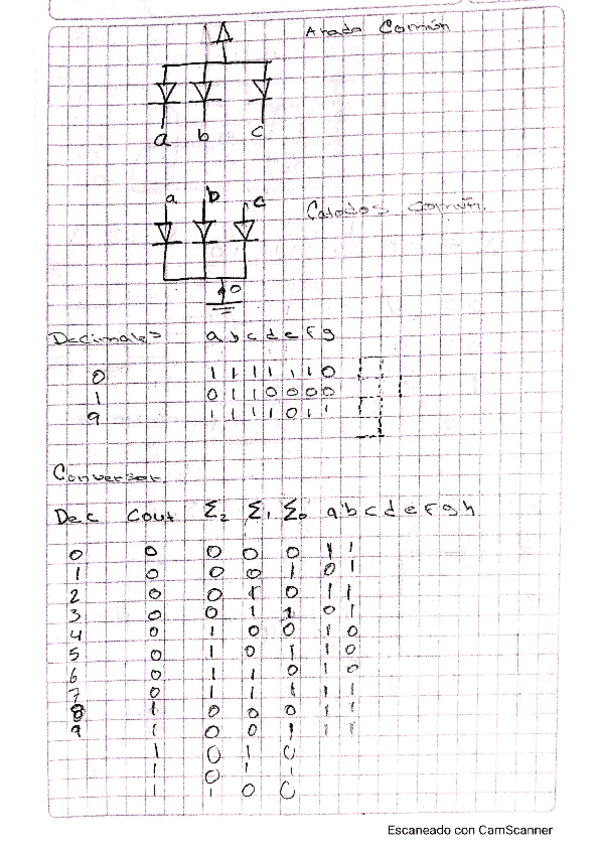 Anodo Común
a b c
a b c
Catodos común.
0
Decimales a b c d e f g
0 1 1 1 1 1 1 0
1 0 1 1 0 0 0 0
9 1 1 1 1 0 1 1
Conversor
Dec Cout Σ2 Σ1 Σ0 a b c d e f g h
0 0 0 0 0 1 1
1 0 0 0 1 0 1
2 0 0 1 0 1 1
3 0 0 1 1 0 1
4 0 1 0 0 1 0
5 0 1 0 1 1 0
6 0 1 1 0 1 0
7 0 1 1 1 1 1
8 1 0 0 0 1 1
9 1 0 0 1 1 1
1 0 1 0
1 0 1 1
1 1 0 0
Escaneado con CamScanner